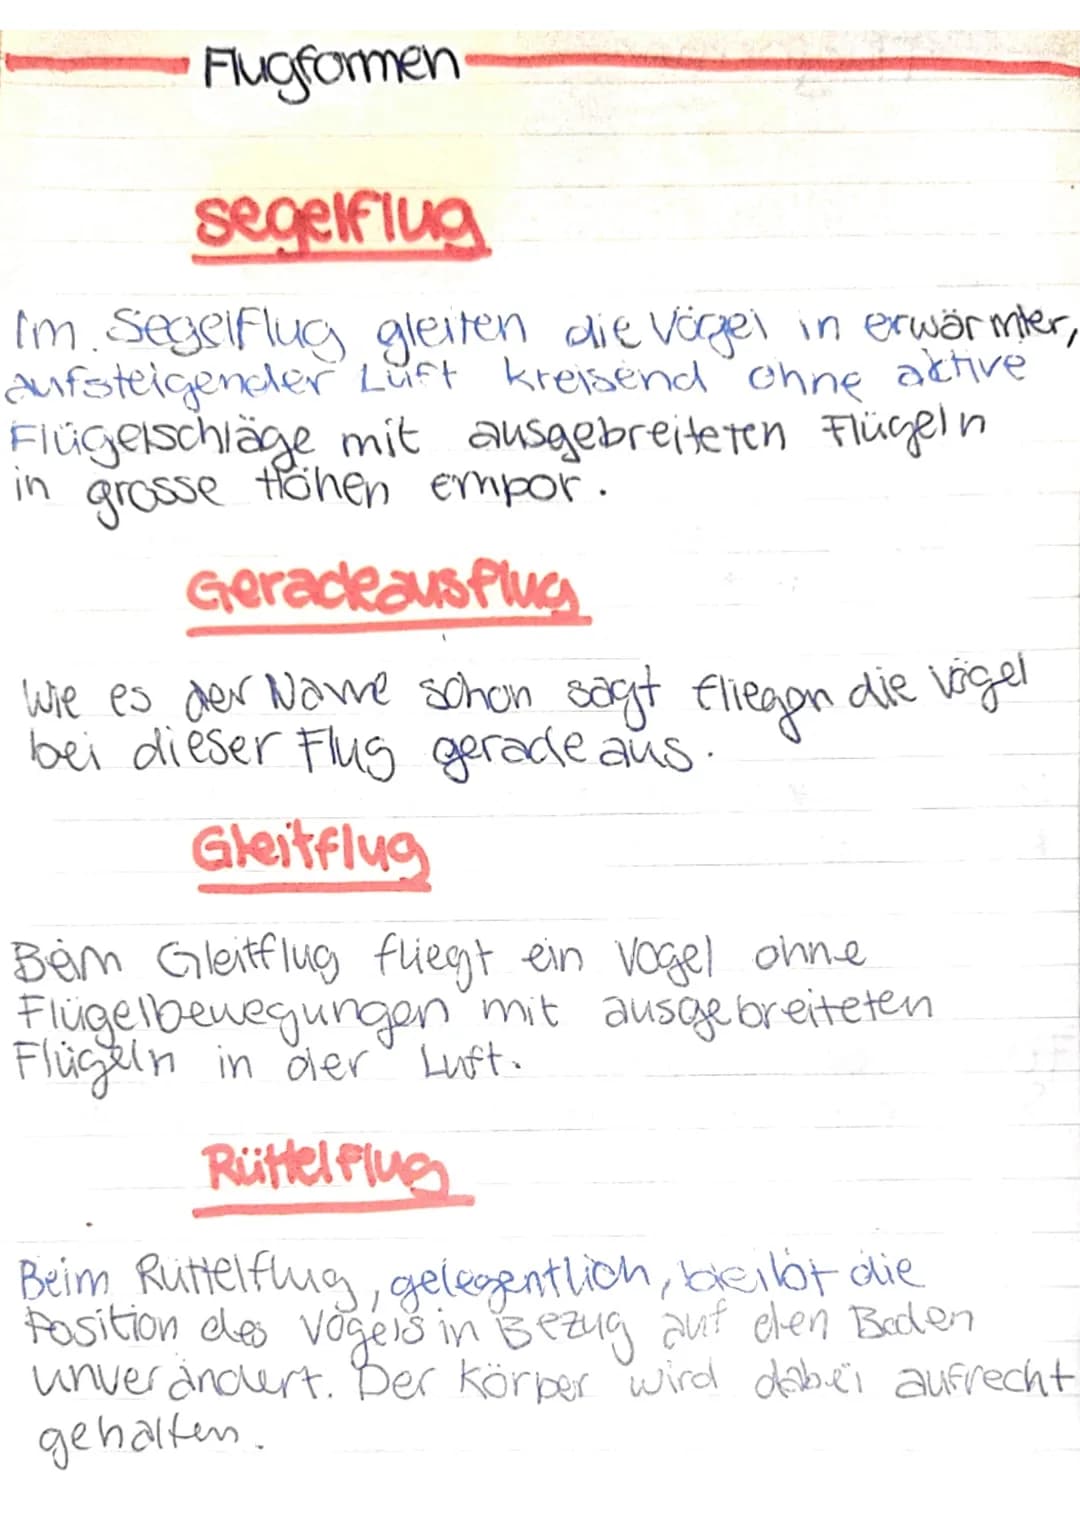 Flugformen
segelflug
Im Segelflug gleiten die Vögel in erwärmter,
aufsteigender Luft kreisend ohne aktive
Flügelschläge mit ausgebreiteten Flügeln
in grosse Höhen empor.
Geradeausflug
Wie es der Name schon sagt fliegen die Vögel
bei dieser Flug geradeaus.
Gleitflug
Beim Gleitflug fliegt ein Vogel ohne
Flügelbewegungen mit ausgebreiteten
Flügeln in der Luft.
Rüttelflug
Beim Rüttelflug, gelegentlich, bleibt die
Position des Vögels in Bezug auf den Boden
unverändert. Der Körper wird dabei aufrecht
gehalten.